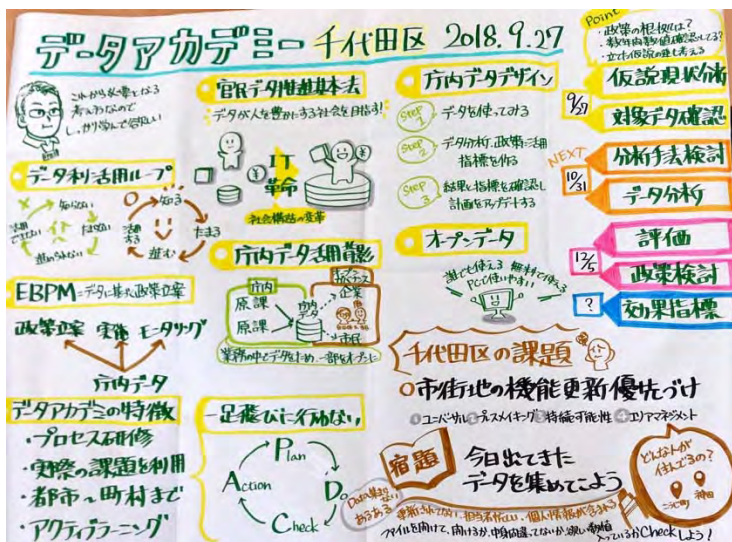 データアカデミー 千代田区 2018.9.27
これから必要となる
考え方なので
しっかり学んで欲しい
データ利活用ループ
知らない
活用
できない
たまらない
進められない
知る
たまる
進む
活用
する
EBPM=データに基づく政策立案
政策立案 実施 モニタリング
庁内データ
データアカデミーの特徴
・プロセス研修
・実際の課題を利用
・都市~町村まで
・アクティブラーニング
官民データ推進基本法
データが人を豊かにする社会を目指す!
IT
革命
社会構造の変革
庁内データ活用背景
庁内
原課
原課
庁内
データ
オープン
ガバナンス
企業
市民
業務の中でデータをため、一部をオープンに
一足飛びに行わない
Plan
Do
Check
Action
庁内データデザイン
Step
1
データを使ってみる
Step
2
データ分析、政策に活用
指標を作る
Step
3
結果と指標を確認し
計画をアップデートする
オープンデータ
誰でも使える 無料で使える
PCで使いやすい
Point
・政策の根拠は?
・数年内数値確認してる?
・立てた仮説の進も考える
9/27
仮説現状分析
対象データ確認
NEXT
10/31
分析手法検討
データ分析
12/5
評価
政策検討
?
効果指標
千代田区の課題
○市街地の機能更新優先づけ
1 ユニバーサル 2 プレスメイキング 3 持続可能性 4 エリアマネジメント
宿題
今日出てきた
データを集めてこよう
どんな人が
住んでるの?
こうじ町
神田
Data集まらない
あるある
更新されてない、担当者忙しい、個人情報が含まれる
ファイルを開けて、開けるか、中身間違ってないか、欲しい数値
入っているかCheckしよう!